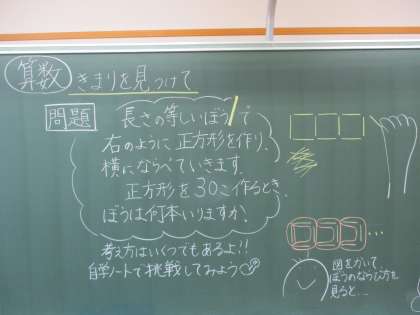 算数 きまりを見つけて
問題 長さの等しいぼうで
右のように正方形を作り、
横にならべていきます。
正方形を30こ作るとき、
ぼうは何本いりますか。
考え方はいくつでもあるよ!!
自学ノートで挑戦してみよう
図をかいて、
ぼうのならび方を
見ると…